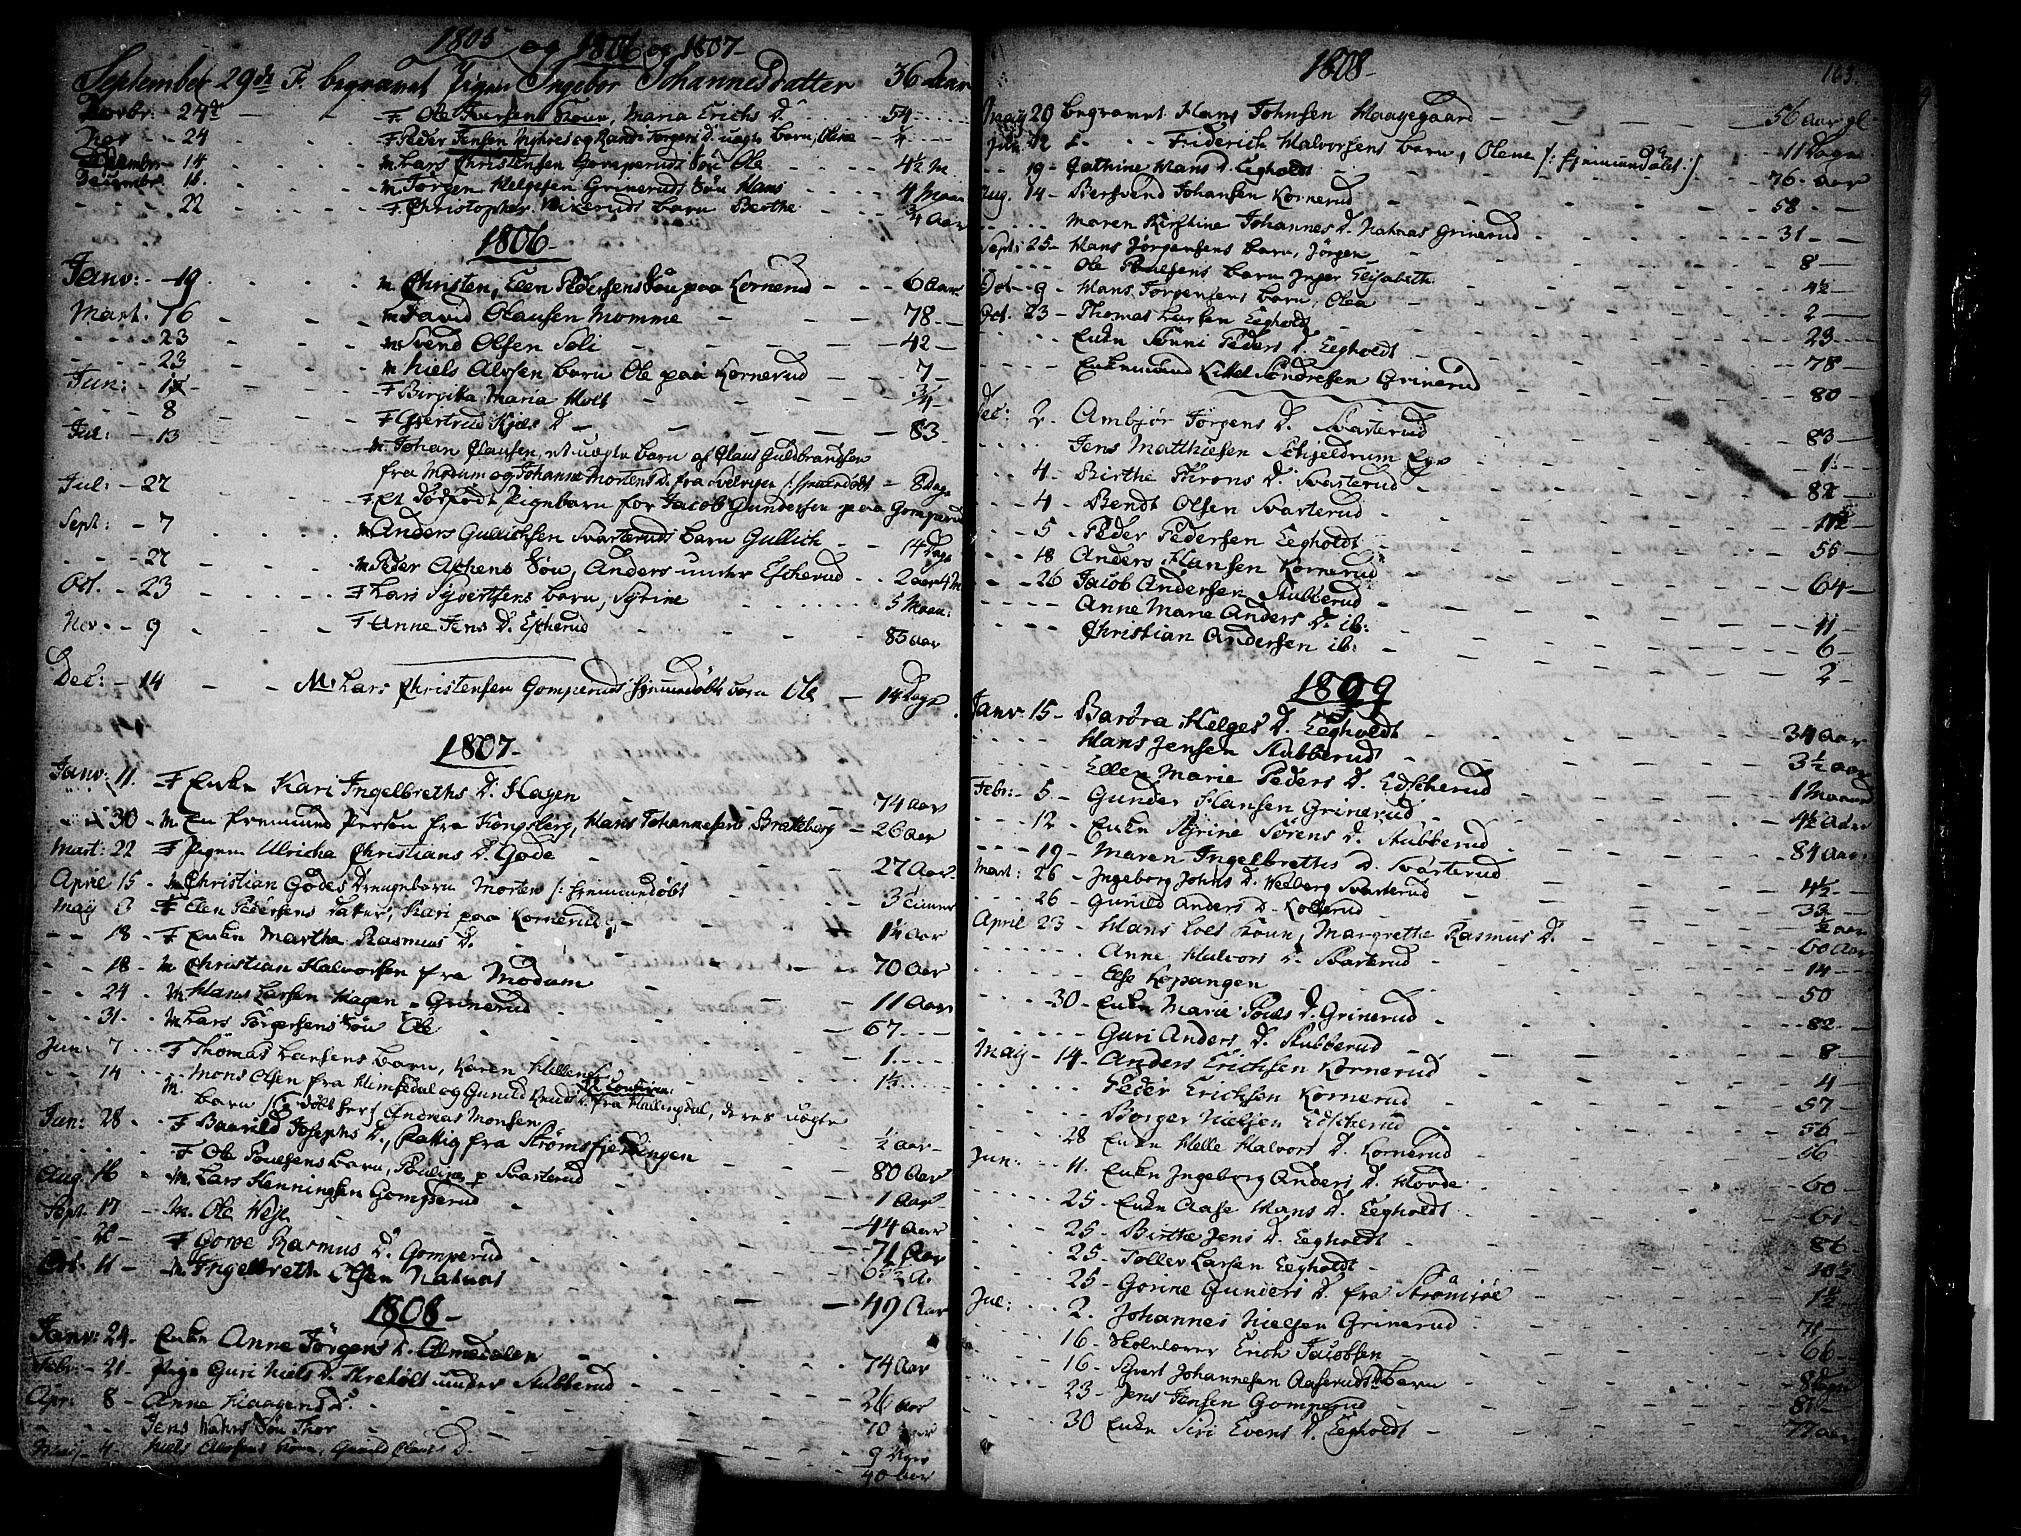 1805 og 1806 og 1807
September 29de F. begravet Pigen Ingebor Johannesdatter 36 Aar
24de F. Ole Iversens Koun, Maria Erichs D. 54
Nov 24 F Peder Jensen og Randi Jørgens D. uægte barn, Olene
Decembr 14 M Lars Christensen Gomperuds Søn Ole 4½ M
Decembr 16 M Jørgen Helgesen Grineruds Søn Hans 4 Maan
22 F. Christopher barn Berthe ¾ Aar
1806
Janv: 19 M Christen, Elen Pedersens Søn paa Kornerud 6 Aar
Mart. 16 M David Clausen Momme 78
23 M Svend Olsen Soli 42
23 M Niels barn Ole paa Kornerud 7
Jun: F Birgitta Maria Holt ¾
8 F Giertrud Kiels D. 83
Jul: 13 M Johan Clausen, et uægte barn af Claus Guldbrandsen
fra Modum og Johanne Mortens D. fra Svelvigen 8 dage
Jul: 27 F Et dødfødt Pigebarn for Jacob Gundersen paa Gomperud
Sept: 7 M Anders Gullichsen Svarteruds barn Gullich 14 Dage
27 M Peder Søn, Anders under Escherud 2 aar 4 M
Oct. 23 F Lars Syvertsens barn, Syrine 5 Maan:
Nov. 9 F Anne Jens D. Escherud 85 aar
Dec: 14 M: Lars Christensen Gomperuds barn Ole 14 Dage
1807
Janv: 11. F Enken Kari Ingelbreths D. Hagen 74 Aar
30 M En fremmed Person fra Kongsberg, Hans Johannesen Bratteborg 26 Aar
Mart: 22 F Pigen Ulricha Christians D. Gode 27 Aar
April 15 M Christian Godes Drengebarn Morten hjemmedøbt 3
May 3 F Elen Pedersens Datter, Kari paa Kornerud 1¼ Aar
18 F Enken Marthe Rasmus D. 70 Aar
18 M Christian Halvorsen fra Modum 11 Aar
24 M Hans Larsen Hagen Grinerud 67
31 M Lars Jørgensens Søn Ole 1
Jun: 7 F Thomas Larsens barn, Karen Hellene 1½
14 M Mons Olsen fra Hemsedal og Gunild Knuds D. fra Hallingdal, deres uægte
barn Andreas Monsen ½ aar
Jun: 28 F Baarild Josephs D., Fattig fra Strømsfjerdingen 80 Aar
F Ole Poulsens barn, Pauline p Svarterud 1 Aar
Aug. 16 M Lars Henningsen Gomperud 44 Aar
Sept. 17 M. Ole Weje 71 Aar
20 F Gorve Rasmus D. Gomperud
Oct. 11 M Ingelbreth Olsen Natnas 49 Aar
1808
Janv: 24 Enken Anne Jørgens D. Almedalen 74 Aar
Febr: 21 Pige Guri Niels D. under Stubberud 26 Aar
Apr: 8 Anne Haagens D. 70 Aar
Jens Søn Thor 9 Uger
May 4 Niels Koun, Gunild Claus D. 40 Aar
1808
163.
May 29 begravet Hans Johnsen Haagegaard 56 aar gl
Jun. 12 Friderich Halvorsens barn, Olene 11 Dage
19 Cathrine Hans D. Eegholdt 76 Aar
Aug. 14 Bersvend Johansen Kornerud 58
Maren Kirstine Johannes D. Natnas Grinerud 31
Sept: 25 Hans Jørgensens barn, Jørgen 8
Ole Poulsens barn Inger Elisabeth 4½
Oct 9 Hans Jørgensens barn, Olea 2
Oct. 23 Thomas Larsen Eegholdt 23
Enken Tønni Peders D. Eegholdt 78
Enkemand Kittel Sondresen Grinerud 80
Dec: 2. Ambjør Jørgens D. Svarterud 83
Jens Matthiesen Schjeldrum Eye 1
4 Birthe Throns D. Svarterud 82
4 Bendt Olsen Svarterud
5 Peder Pedersen Eegholdt 55
18 Anders Hansen Kornerud 64
26 Jacob Andersen Stubberud 11
Anne Marie Anders D. ib: 6
Christian Andersen ib: 2
1809
Janv. 15 Barbra Helges D. Eegholdt 34 Aar
Hans Jensen Stubberud 3½ aar
Ellen Marie Peders D. Edscherud 1 Maaned
Febr: 5 Gunder Hansen Grinerud 4½ Aar
12 Enken Syrine Sørens D. Stubberud 84 Aar
19 Maren Ingelbreths D. Svarterud 4½
Mart: 26 Ingeborg Johns D. Wedberg Svarterud 33
26 Gunild Anders D. Kollerud ½ aar
April 23 Hans Loes Koun, Margrethe Rasmus D. 60 Aar
Anne Halvors D. Svarterud 14
Else Kopangen 50
30 Enken Marie Poels D. Grinerud 82
Guri Anders D. Stubberud 8
May 14 Anders Erichsen Kornerud 4
Peder Erichsen Kornerud 57
Borger Nielsen Edscherud 56
28 Enken Helle Halvors D. Kornerud 56
Jun: 11. Enken Ingeborg Anders D. Hovde 60
25 Enken Aase Hans D. Eegholdt 61
25 Birthe Jens D. Eegholdt 86
25 Toller Larsen Eegholdt 10½
25 Gorine Gunders D. fra Strømsøe 1½
Jul: 2. Johannes Nielsen Grinerud 71
16 Skolelærer Erich Jacobsen 66
16 Syvert Johannesen Aaseruds barn 8 dage
23 Jens Jensen Gomperud 81
30 Enken Siri Evens D. Eegholdt 77 aar